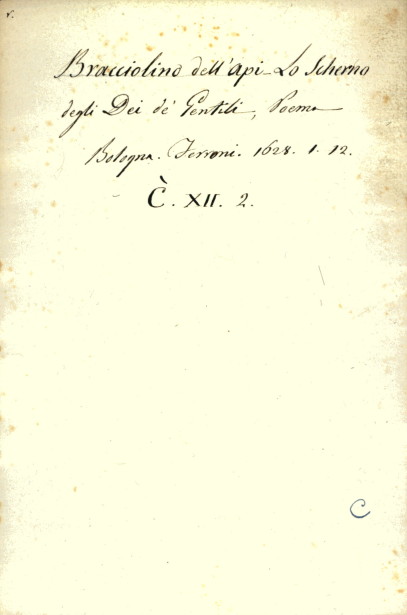 Bracciolino dell'api - Lo Scherno
degli Dei de' Gentili, Poema
Bologna. Ferroni. 1628. 1. 12.
C̀. XII. 2.
C